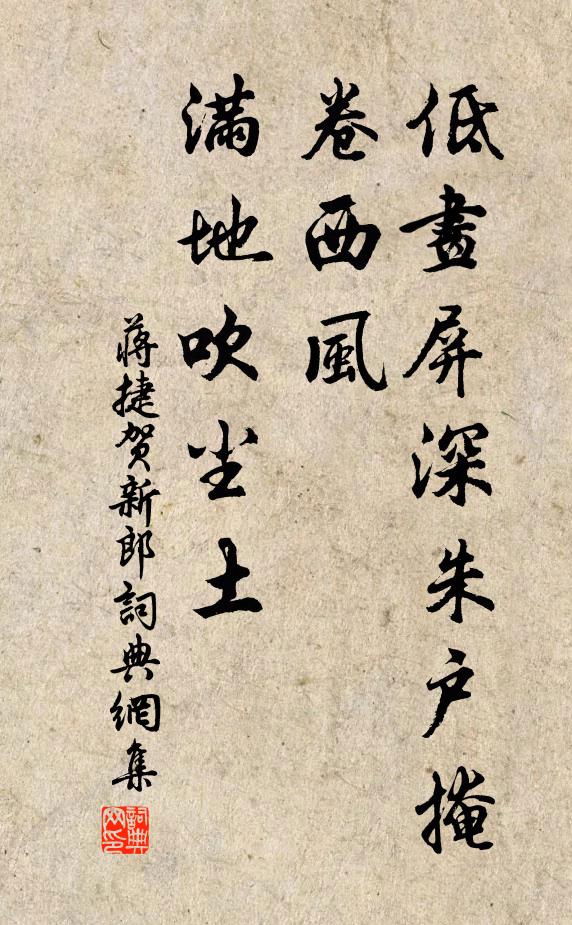 低畫屏深朱户掩
卷西風
滿地吹尘土
蔣捷賀新郎詞典網集
詞典网印